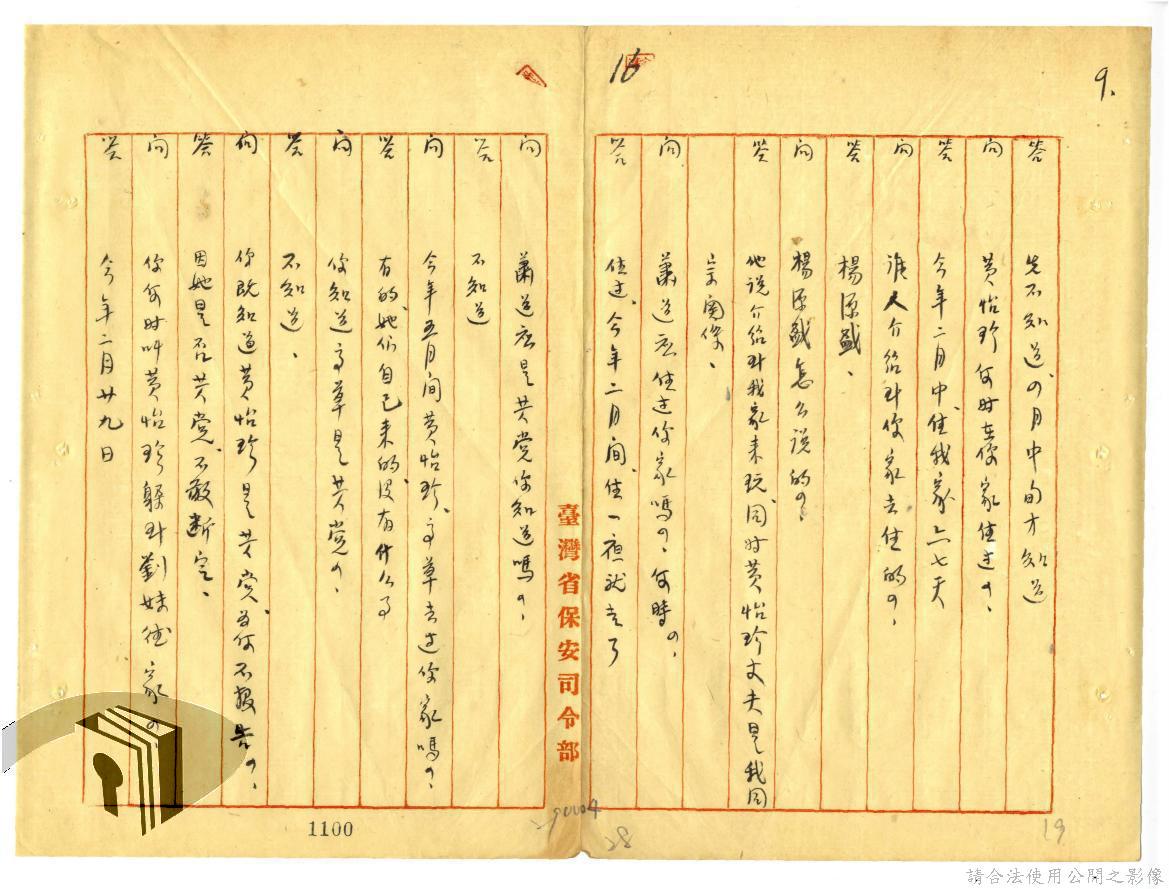 9.
16
答 先不知道、四月中旬才知道
问 黄怡珍何时在你家住过？、
答 今年二月中、住我家六七天
问 谁人介绍到你家去住的？、
答 楊源盛、
问 楊源盛怎么说的？、
答 他说介绍到我家来玩、同时黄怡珍丈夫是我同
宗関係、
问 蕭道应住过你家嗎？、何時？、
答 住过、今年二月间、住一夜就走了
臺灣省保安司令部
问 蕭道应是共党你知道嗎？、
答 不知道
问 今年五月间黄怡珍、高草去过你家嗎？、
答 有的、她们自己来的、没有什么事
问 你知道高草是共党？、
答 不知道、
问 你既知道黄怡珍是共党、为何不报告？、
答 因她是否共党、不敢断定、
问 你何时叫黄怡珍躲到劉妹德家？
答 今年二月廿九日
1100
28
19
請合法使用公開之影像